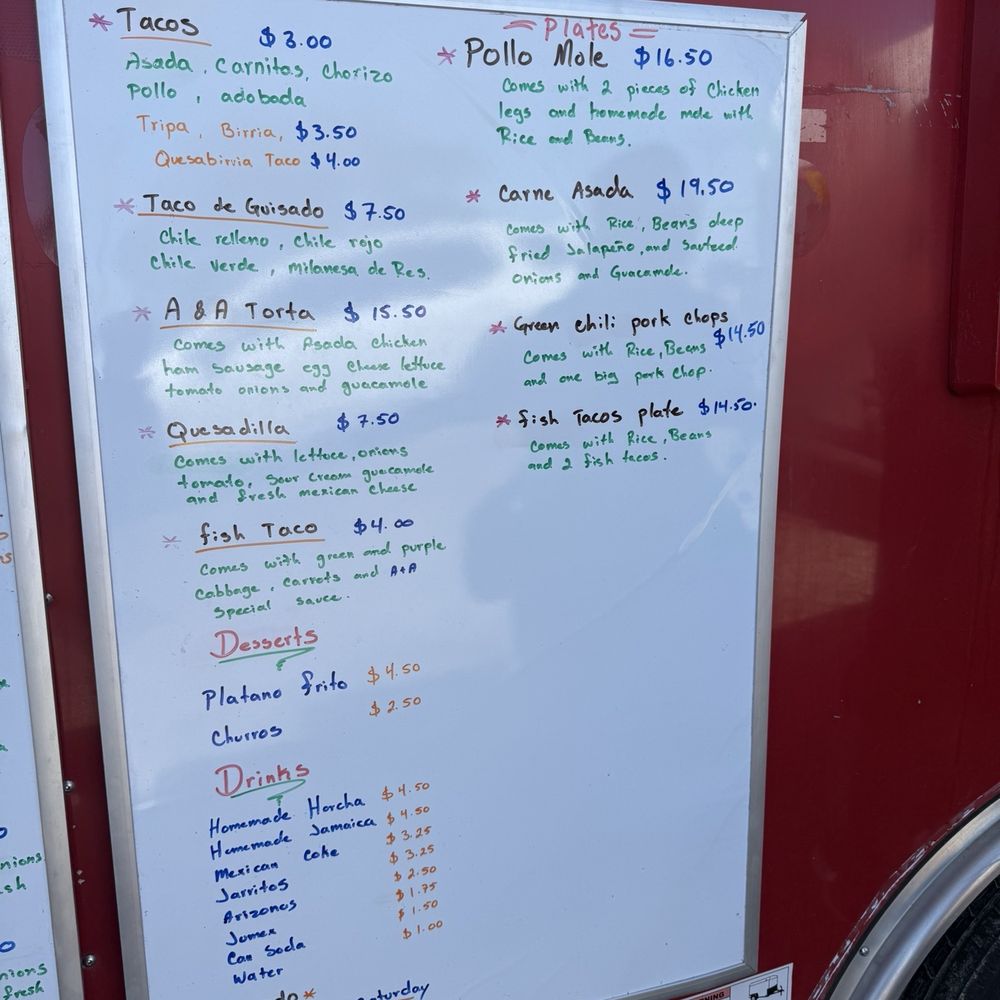 * Tacos $3.00
Asada, Carnitas, Chorizo
Pollo, adobada
Tripa, Birria, $3.50
Quesabirria Taco $4.00
* Taco de Guisado $7.50
Chile relleno, Chile rojo
Chile Verde, milanesa de Res.
* A & A Torta $15.50
Comes with Asada chicken
ham sausage egg Cheese lettuce
tomato onions and guacamole
* Quesadilla $7.50
Comes with lettuce, onions
tomato, sour cream guacamole
and fresh mexican cheese
* fish Taco $4.00
Comes with green and purple
Cabbage, carrots and A+A
Special sauce.
Desserts
Platano frito $4.50
Churros $2.50
Drinks
Homemade Horcha $4.50
Homemade Jamaica $4.50
Mexican coke $3.25
Jarritos $3.25
Arizonas $2.50
Jumex $1.75
Can Soda $1.50
Water $1.00
= Plates =
* Pollo Mole $16.50
Comes with 2 pieces of Chicken
legs and homemade mole with
Rice and Beans.
* Carne Asada $19.50
Comes with Rice, Beans deep
fried Jalapeño, and sauteed
onions and Guacamole.
* Green chili pork chops
$14.50
Comes with Rice, Beans
and one big pork chop.
* fish Tacos plate $14.50.
Comes with Rice, Beans
and 2 fish tacos.